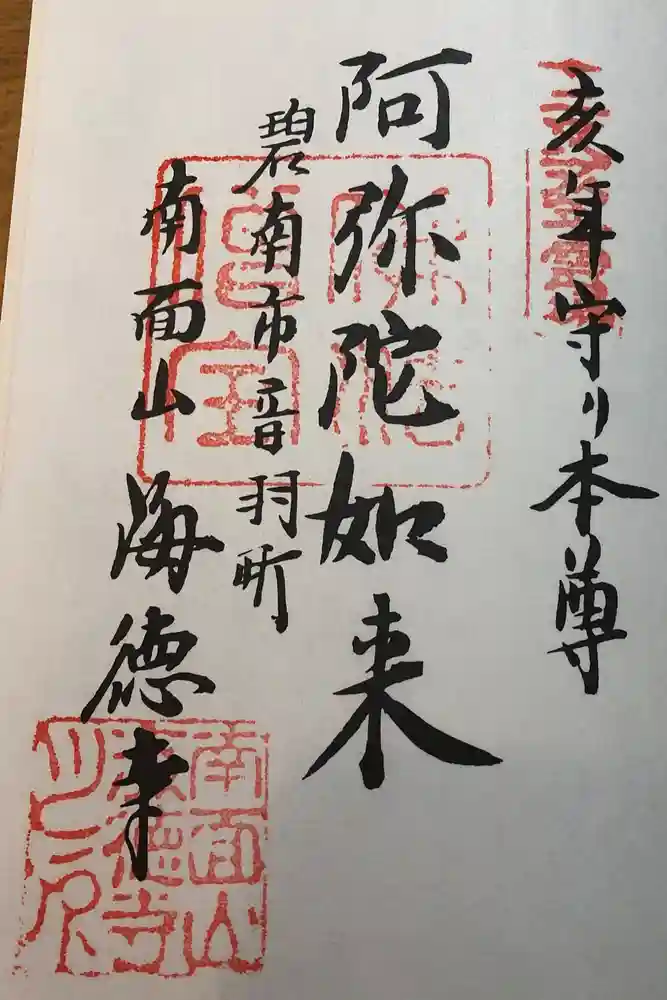 亥年守り本尊
阿弥陀如来
碧南市音羽町
南面山 海徳寺
佛法僧宝
南面山
海徳寺